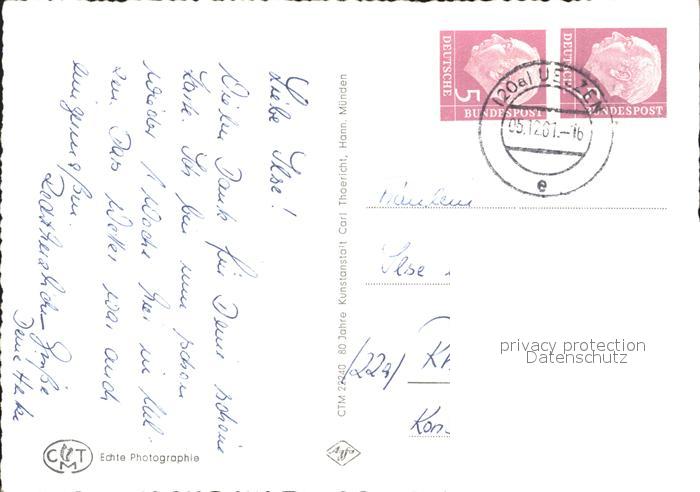 Liebe Ilse!
Vielen Dank für Deine schöne
Karte. Ich bin nun schon
wieder 1 Woche hier in Uel-
zen. Das Wetter war auch
einigermaßen.
Recht herzliche Grüße
Deine
CTM 22240 80 Jahre Kunstanstalt Carl Thoericht, Hann. Münden
CTM Echte Photographie
Agfa
DEUTSCHE
5
BUNDESPOST
DEUTSCHE
5
BUNDESPOST
(20a) UELZEN
05.12.61.-16
e
Fräulein
Ilse
(22a)
privacy protection
Datenschutz